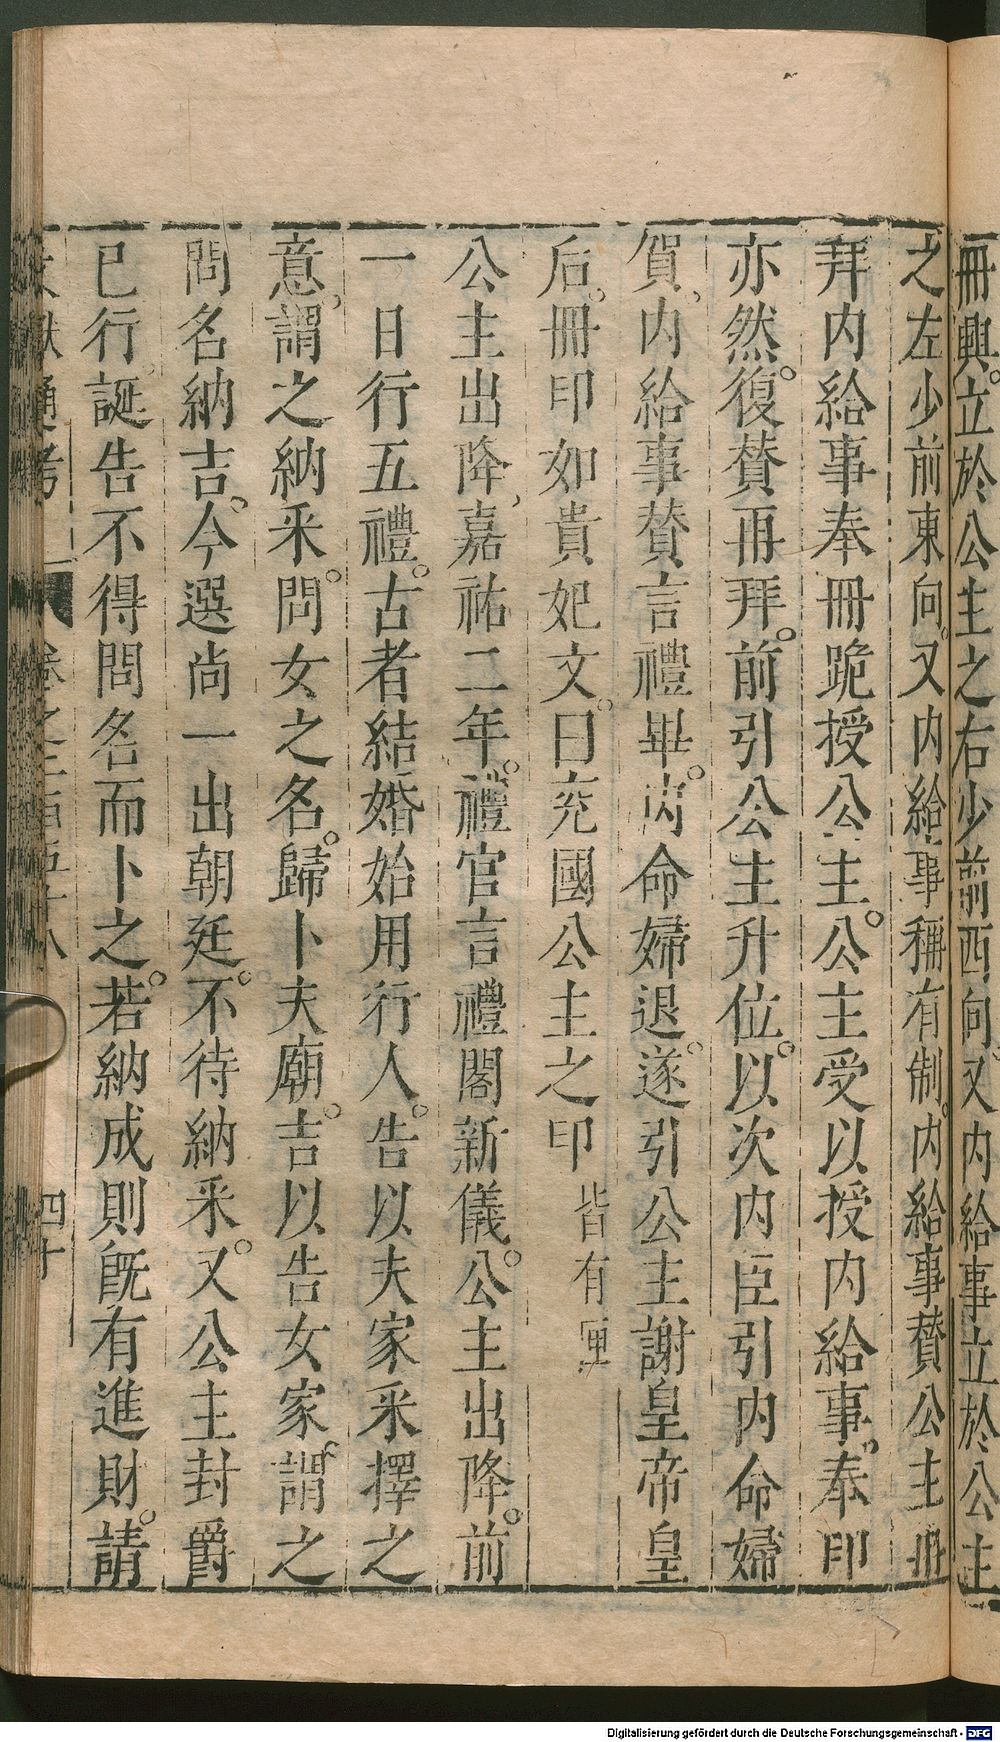 冊興立於公主之右少前西向又内給事立於公主
之左少前東向又内給事稱有制内給事贊公主冊
拜内給事奉冊跪授公主公主受以授内給事奉印
亦然復贊再拜前引公主升位以次内臣引内命婦
賀内給事贊言禮畢内命婦退遂引公主謝皇帝皇
后冊印如貴妃文曰兖國公主之印皆有匣
公主出降嘉祐二年禮官言禮閣新儀公主出降前
一日行五禮古者結婚始用行人告以夫家采擇之
意謂之納采問女之名歸卜夫廟吉以告女家謂之
問名納吉今選尚一出朝廷不待納采又公主封爵
已行誕告不得問名而卜之若納成則既有進財請
文獻通考 卷之二百五十八 四十
Digitalisierung gefördert durch die Deutsche Forschungsgemeinschaft - DFG